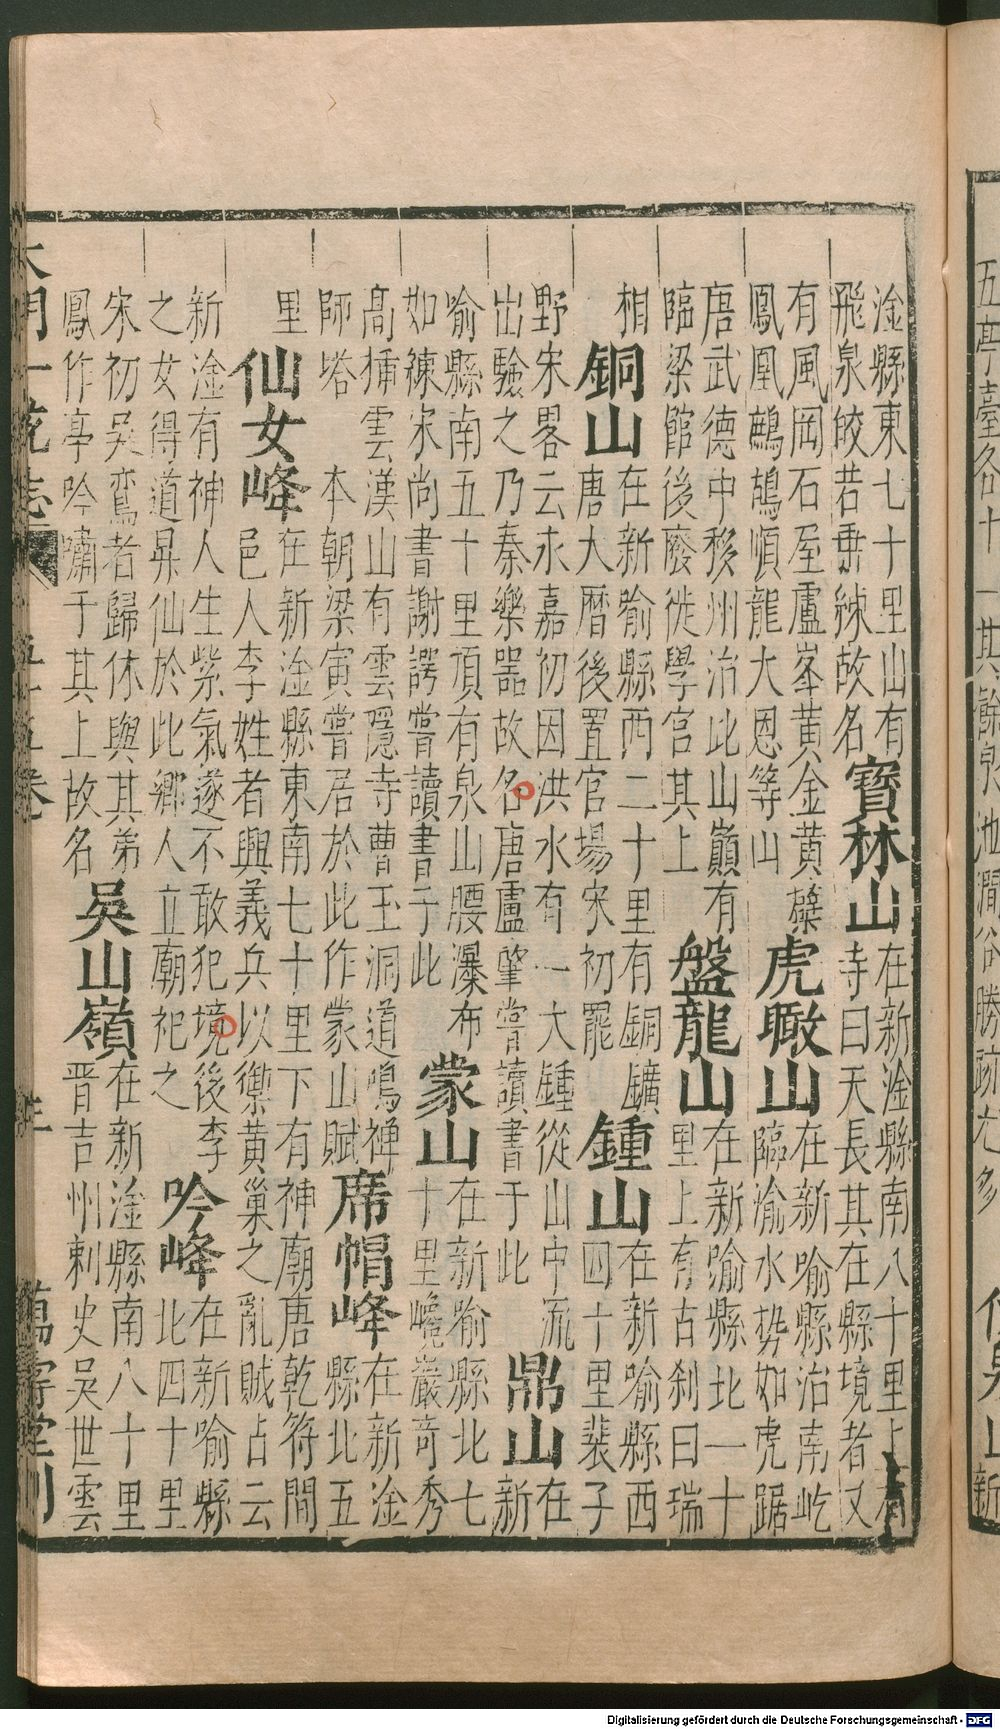 淦縣東七十里山有
飛泉皎若垂練故名
寶林山
在新淦縣南八十里上有
寺曰天長其在縣境者又
有風岡石屋廬峯黄金黄櫱
鳳凰鷓鴣順龍大恩等山
虎瞰山
在新喻縣治南屹
臨渝水勢如虎踞
唐武德中移州治此山巓有
臨梁館後廢徙學宫其上
盤龍山
在新踰縣北一十
里上有古刹曰瑞
相
銅山
在新喻縣西二十里有銅鑛
唐大曆後置官場宋初罷
鍾山
在新喻縣西
四十里裴子
野宋畧云永嘉初因洪水有一大鍾從山中流
出驗之乃秦樂器故名唐盧肇嘗讀書于此
鼎山
在新
喻縣南五十里頂有泉山腰瀑布
如練宋尚書謝諤嘗讀書于此
蒙山
在新喻縣北七
十里巉巖奇秀
高插雲漢山有雲隱寺曹玉洞道鳴禅
師塔 本朝梁寅嘗居於此作蒙山賦
席帽峰
在新淦
縣北五
里
仙女峰
在新淦縣東南七十里下有神廟唐乾符間
邑人李姓者興義兵以禦黄巢之亂賊占云
新淦有神人生紫氣遂不敢犯境後李
之女得道昇仙於此鄉人立廟祀之
吟峰
在新喻縣
北四十里
宋初吳鸞者歸休與其弟
鳳作亭吟嘯于其上故名
吳山嶺
在新淦縣南八十里
晋吉州刺史吳世雲
大明一統志
五十五卷
五亭臺各十一其餘
池澗谷勝
尤多
新
Digitalisierung gefördert durch die Deutsche Forschungsgemeinschaft - DFG